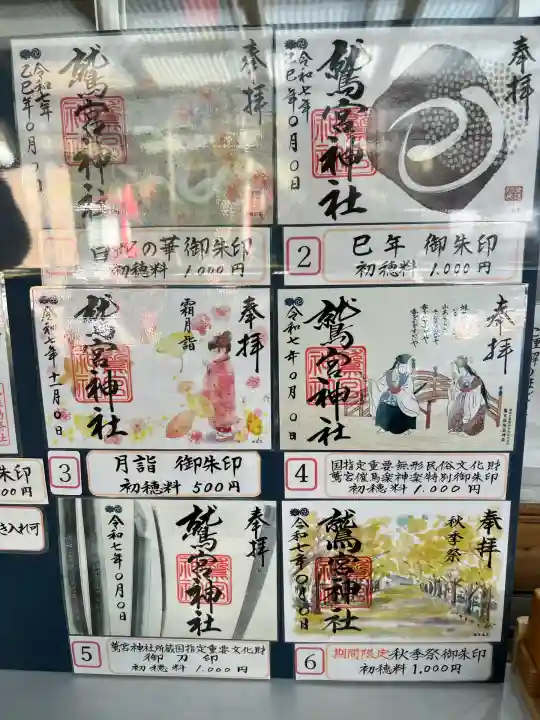 奉拝
鷲宮神社
令和七年
乙巳年〇月〇日
の華 御朱印
初穂料 1,000円
奉拝
鷲宮神社
令和七年
乙巳年〇月〇日
2
巳年 御朱印
初穂料 1,000円
奉拝
霜月詣
鷲宮神社
令和七年十一月〇日
3
月詣 御朱印
初穂料 500円
奉拝
鷲宮神社
令和七年〇月〇日
4
国指定重要無形民俗文化財
鷲宮催馬楽神楽特別御朱印
初穂料 1,000円
奉拝
鷲宮神社
令和七年〇月〇日
5
鷲宮神社所蔵国指定重要文化財
御刀印
初穂料 1,000円
奉拝
秋季祭
鷲宮神社
令和七年〇月〇日
6
期間限定 秋季祭御朱印
初穂料 1,000円
朱印
00円
き入れ可